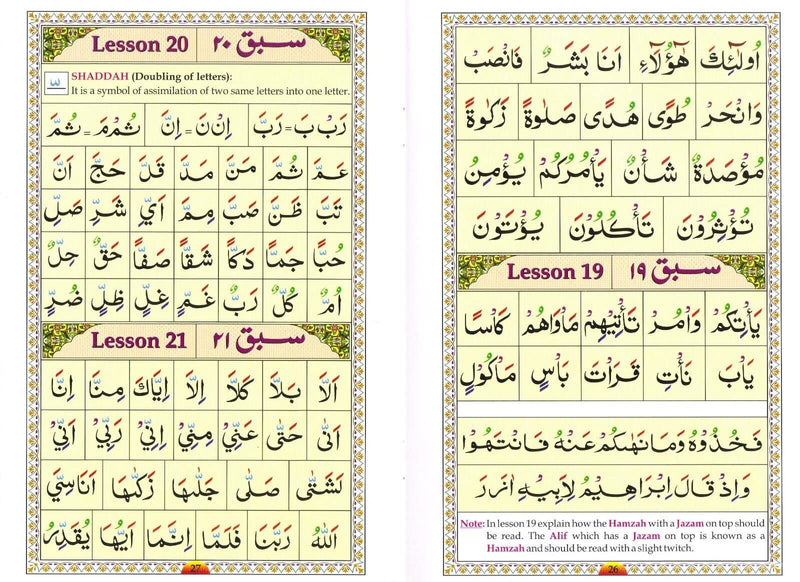 اُولٰٓئِكَ هٰٓؤُلَآءِ اَنَا بَشَرٌ فَانْصَبْ
وَانْحَرْ طُوًى هُدًى صَلٰوةً زَكٰوةً
مُؤْصَدَةٌ شَأْنٌ يَأْمُرُكُمْ يُؤْمِنُ
تُؤْثِرُوْنَ تَأْكُلُوْنَ يُؤْتَوْنَ
Lesson 19 سبق ۱۹
يَأْتِكُمْ وَأْمُرْ تَأْتِيْهِمْ مَأْوَاهُمْ كَأْسًا
يَابَ نَأْتِ قَرَأْتَ بَأْسٍ مَأْكُوْلٍ
فَخُذُوْهُ وَمَا نَهٰىكُمْ عَنْهُ فَانْتَهُوْا
وَاِذْ قَالَ اِبْرَاهِيْمُ لِاَبِيْهِ
Note: In lesson 19 explain how the Hamzah with a Jazam on top should
be read. The Alif which has a Jazam on top is known as a
Hamzah and should be read with a slight twitch.
26
Lesson 20 سبق ۲۰
SHADDAH (Doubling of letters):
It is a symbol of assimilation of two same letters into one letter.
رَبْ بَ = رَبَّ اِنْ نَ = اِنَّ ثُمْ مَ = ثُمَّ
عَمَّ ثُمَّ مَنَّ مَدَّ قَلَّ حَجَّ اَنَّ
تَبَّ ظَنَّ صَبَّ مِمَّ اَيِّ شَرِّ صَلِّ
حُبًّا جَمًّا دَكًّا شَقًّا صَفًّا حَقٌّ حِلٌّ
اُمٌّ كُلٌّ رَبٌّ غَمٍّ غِلٍّ ظِلٍّ ضُرٍّ
Lesson 21 سبق ۲۱
اَلَّا بَلَّا كَلَّا اِلَّا اِيَّاكَ مِنَّا اِنَّا
اَنّٰى حَتّٰى عَنِّيْ مِنِّيْ اِنِّيْ رَبِّيْ اَنِّيْ
لَشَتّٰى صَلّٰى جَلّٰىهَا زَكّٰىهَا اَنَاسِيَّ
اَللّٰهُ رَبَّنَا فَلَمَّا اِنَّمَا اَيُّهَا يُقَدِّرُ
27